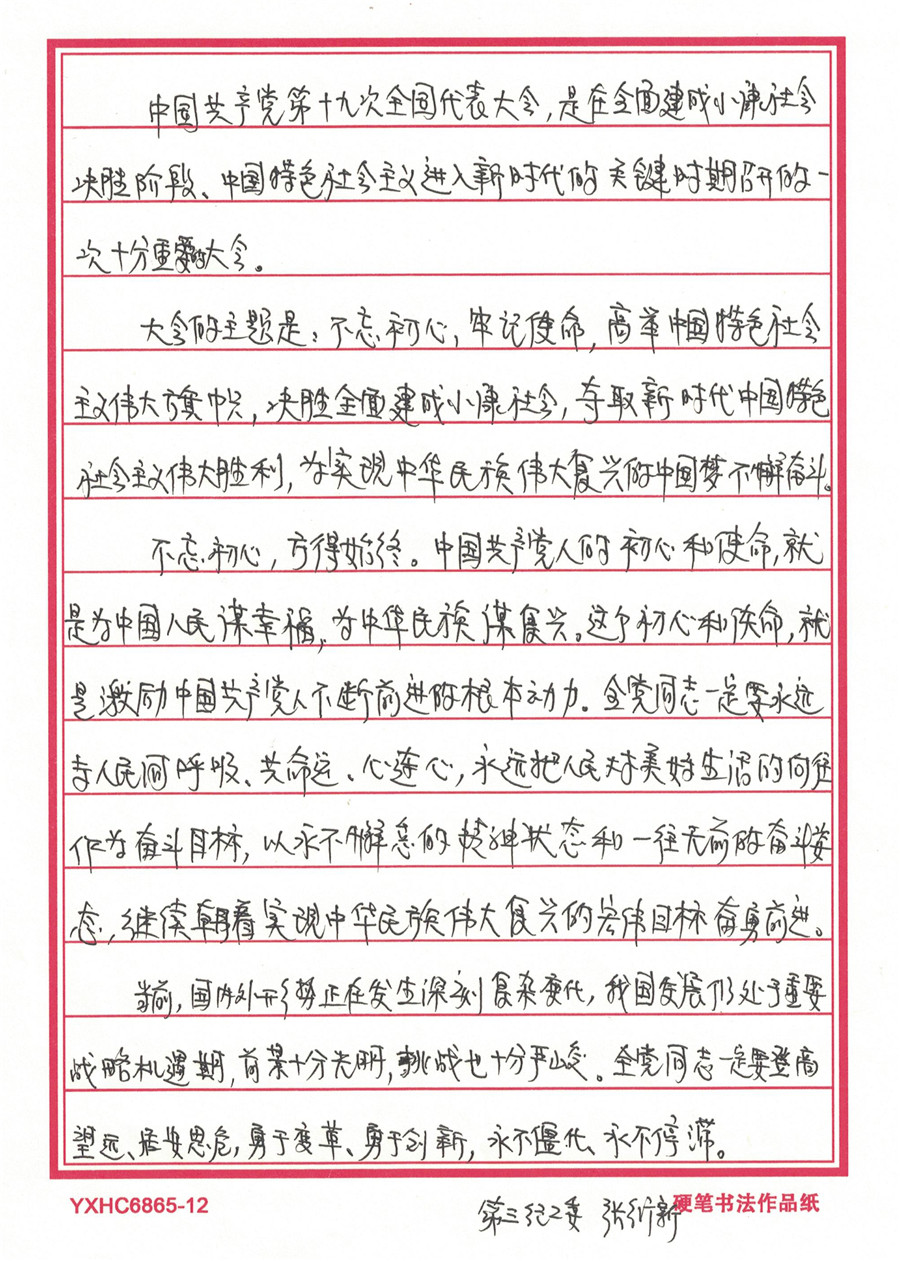 中国共产党第十九次全国代表大会，是在全面建成小康社会
决胜阶段、中国特色社会主义进入新时代的关键时期召开的一
次十分重要的大会。
大会的主题是：不忘初心，牢记使命，高举中国特色社会
主义伟大旗帜，决胜全面建成小康社会，夺取新时代中国特色
社会主义伟大胜利，为实现中华民族伟大复兴的中国梦不懈奋斗。
不忘初心，方得始终。中国共产党人的初心和使命，就
是为中国人民谋幸福，为中华民族谋复兴。这个初心和使命，就
是激励中国共产党人不断前进的根本动力。全党同志一定要永远
与人民同呼吸、共命运、心连心，永远把人民对美好生活的向往
作为奋斗目标，以永不懈怠的精神状态和一往无前的奋斗姿
态，继续朝着实现中华民族伟大复兴的宏伟目标奋勇前进。
当前，国内外形势正在发生深刻复杂变化，我国发展仍处于重要
战略机遇期，前景十分光明，挑战也十分严峻。全党同志一定要登高
望远、居安思危，勇于变革、勇于创新，永不僵化、永不停滞。
YXHC6865-12
硬笔书法作品纸
第三纪工委 张新